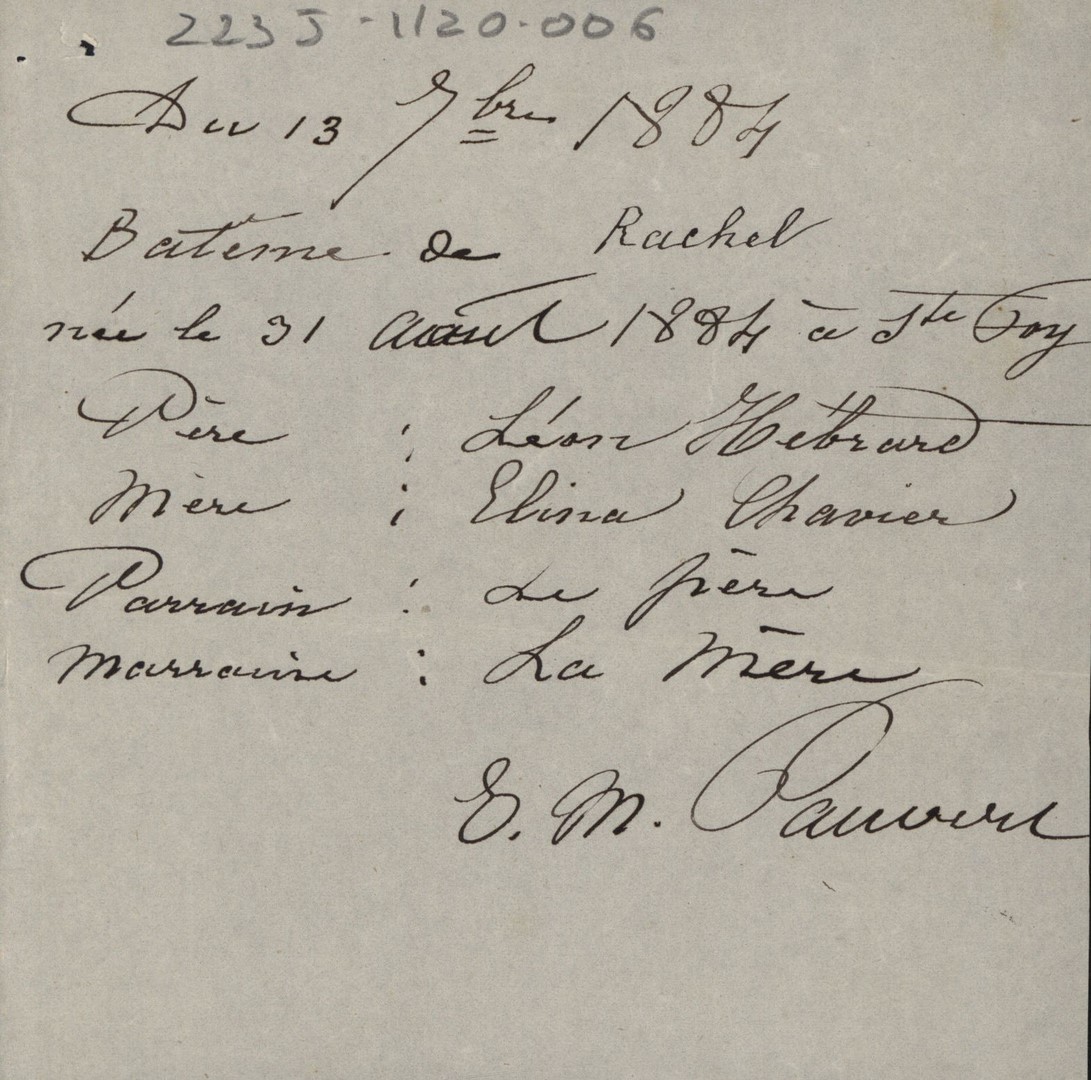 223 J - 1120-006
Du 13 7bre 1884
Batême de Rachel
née le 31 Août 1884 à Ste Foy
Père : Léon Hébrard
Mère : Elina Chavier
Parrain : Le père
Marraine : La Mère
E. M. Pauvert